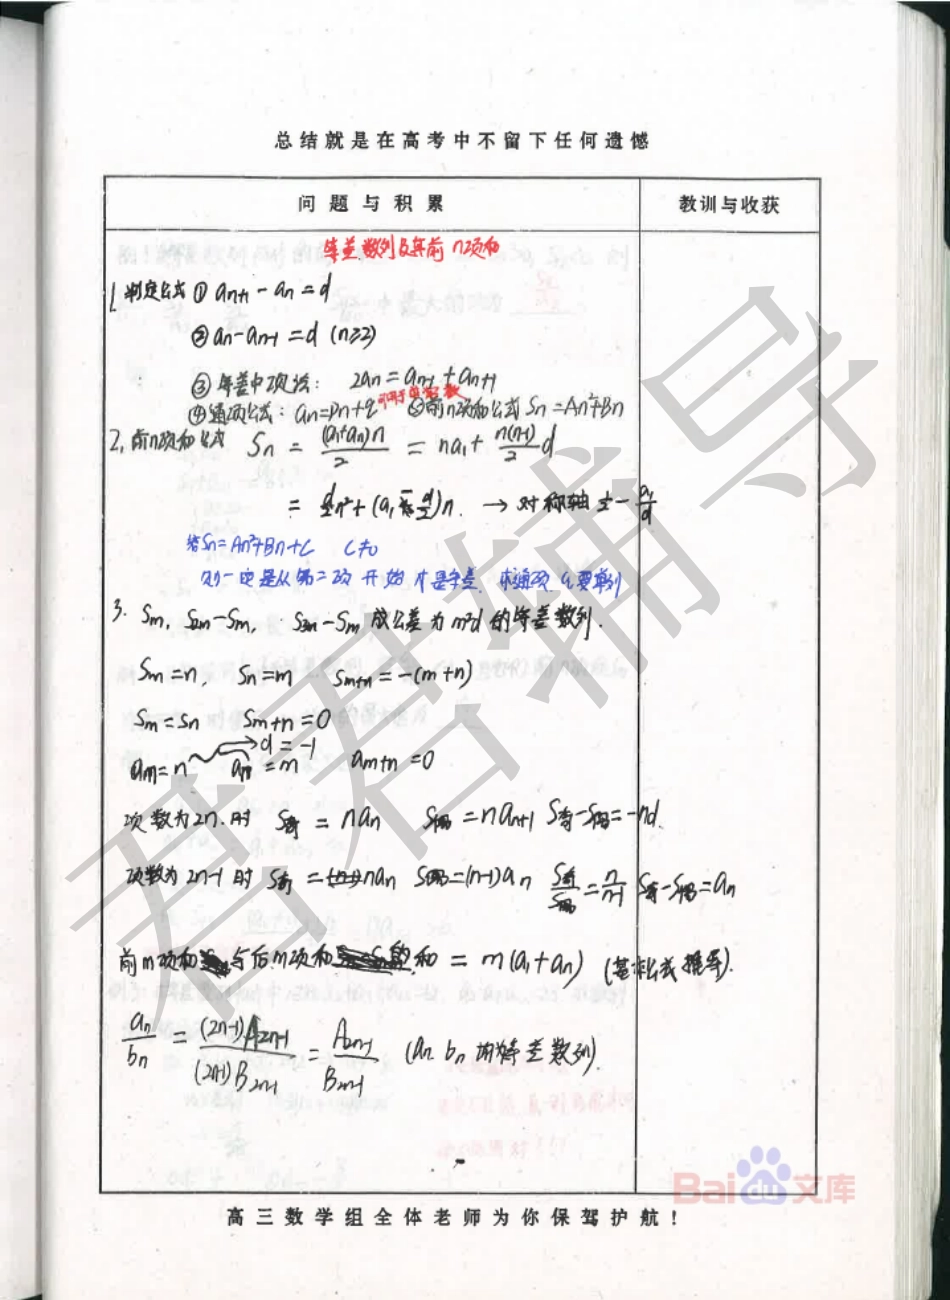 总结就是在高考中不留下任何遗憾
问题与积累 教训与收获
等差数列及其前n项和
1. 判定公式 ① an+1 - an = d
② an - an-1 = d (n≥2)
③ 等差中项法: 2an = an-1 + an+1
④ 通项公式: an = pn+q 可用于单招数 ⑤ 前n项和公式 Sn = An²+Bn
2. 前n项和公式 Sn = (a1+an)n/2 = na1 + n(n-1)/2 d
= d/2 n² + (a1 - d/2)n. → 对称轴 1/2 - a1/d
若Sn = An²+Bn+C C≠0
则一定是从第二项开始才是等差, 求通项 a1要单列
3. Sm, S2m-Sm, S3m-Sm 成公差为m²d的等差数列.
Sm = n, Sn = m Sm+n = -(m+n)
Sm = Sn Sm+n = 0
am = n an = m → d = -1 am+n = 0
项数为2n.时 S奇 = nan S偶 = nan+1 S奇-S偶 = -nd.
项数为 2n-1 时 S奇 = nan S偶 = (n-1)an S奇/S偶 = n/n-1 S奇-S偶 = an
前m项和与后m项和的和 = m(a1+an) (基本公式推导).
an/bn = (2n-1)A2n-1/(2n-1)B2n-1 = A2n-1/B2n-1 (an bn 均为等差数列).
高三数学组全体老师为你保驾护航!
君君辅导
Baidu文库